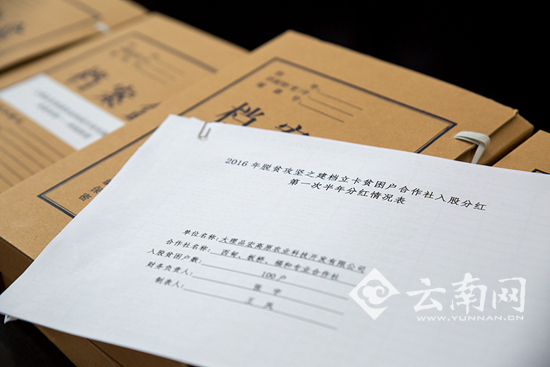 档案
2016年脱贫攻坚之建档立卡贫困户合作社入股分红
第一次半年分红情况表
单位名称：大理品宏高原农业科技开发有限公司
合作社名称：西甸、教桥、福和专业合作社
入股贫困户数：100户
财务负责人：
制表人：
云南网
WWW.YUNNAN.CN